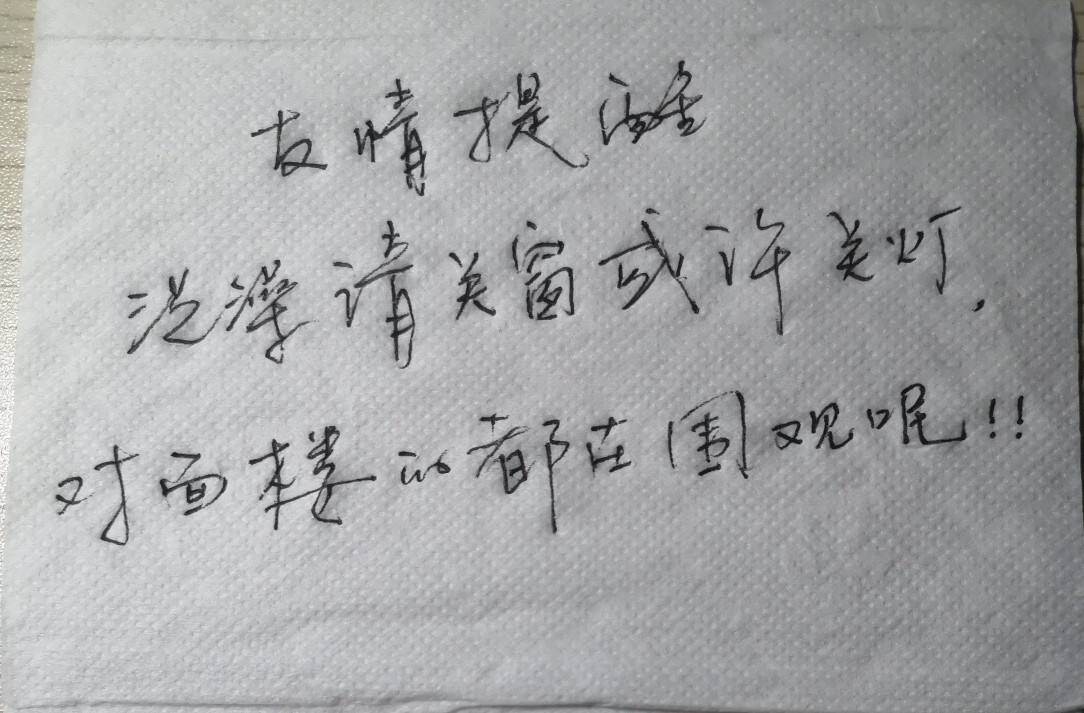 友情提醒
洗澡请关窗或许关灯,
对面楼的都在围观呢!!